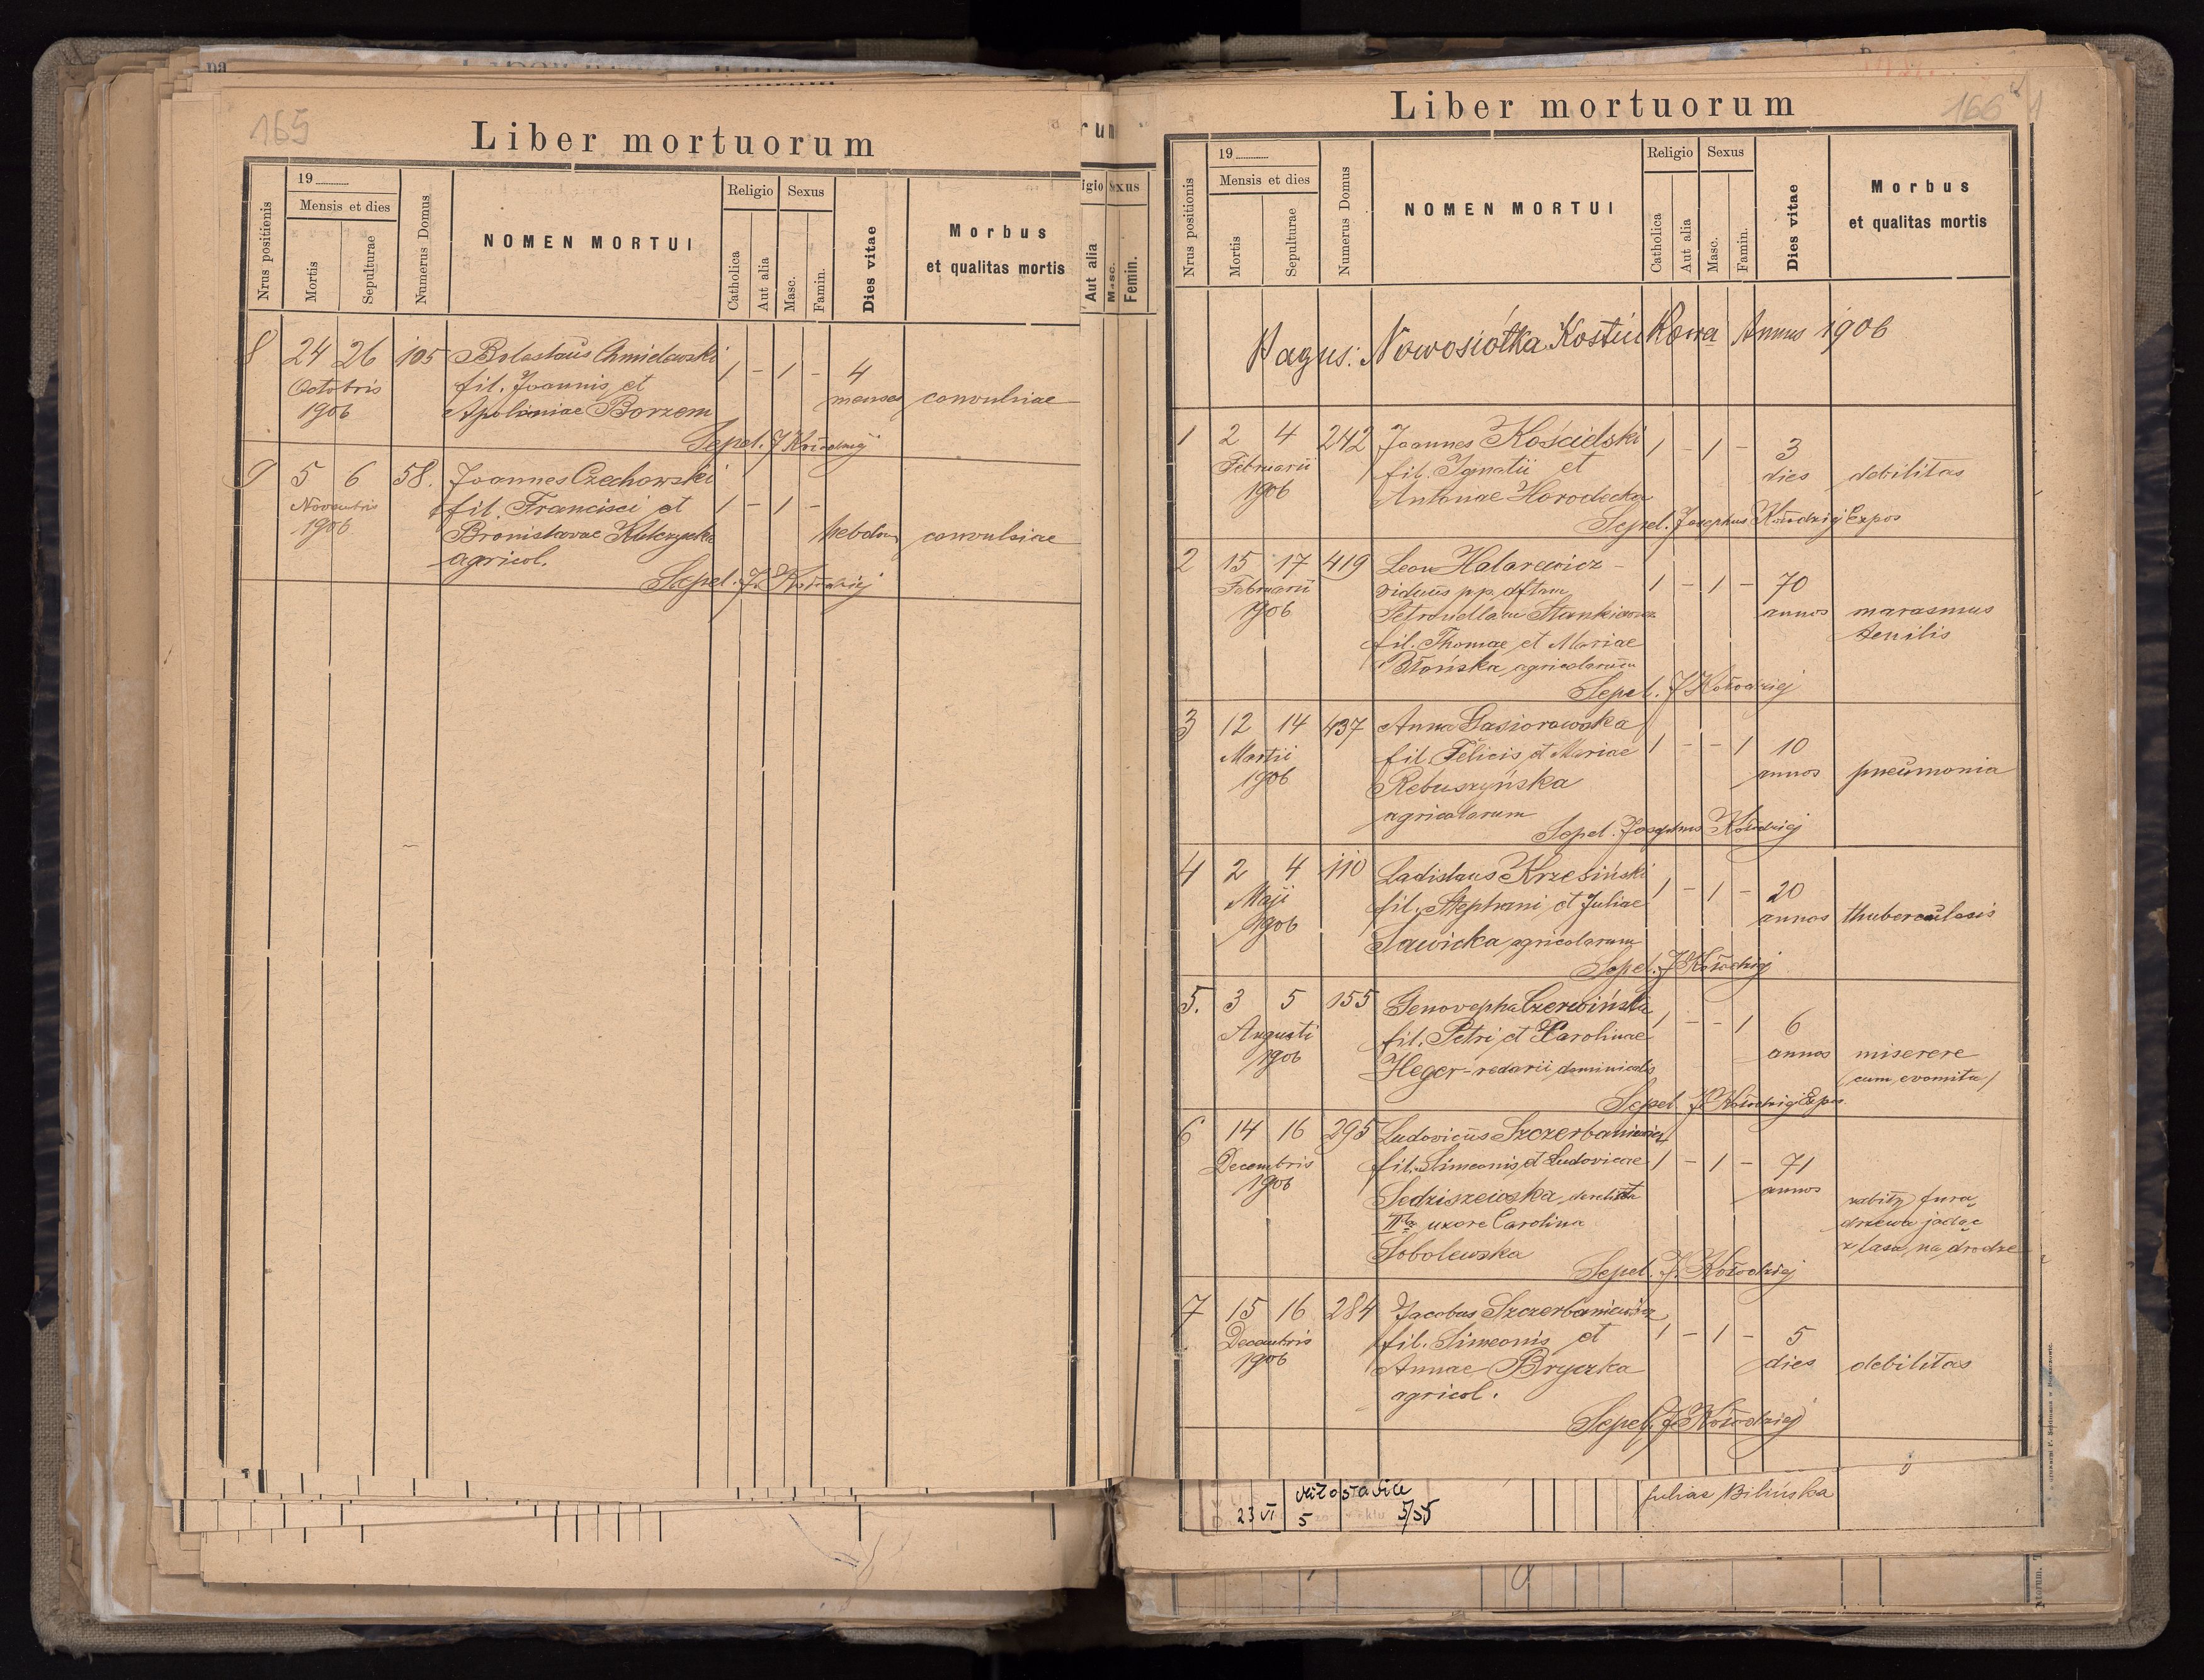 165
Liber mortuorum
Nrus positionis
19
Mensis et dies
Mortis
Sepulturae
Numerus Domus
NOMEN MORTUI
Religio
Catholica
Aut alia
Sexus
Masc.
Famin.
Dies vitae
Morbus
et qualitas mortis
8 24 26 105 Boleslaus Chmielowski 1 - 1 - 4
Octobris fil. Joannis et menses convulsiae
1906 Apoloniae Borzem
Sepel. J Kołodziej
9 5 6 58. Joannes Czechowski
Novembris fil. Francisci et 1 - 1 -
1906 Bronislavae Kulczycka hebdom convulsiae
agricol.
Sepel. J. Kołodziej
run
igio Sexus
Aut alia
Masc.
Femin.
166
1
Liber mortuorum
Nrus positionis
19
Mensis et dies
Mortis
Sepulturae
Numerus Domus
NOMEN MORTUI
Religio
Catholica
Aut alia
Sexus
Masc.
Famin.
Dies vitae
Morbus
et qualitas mortis
Pagus: Nowosiółka Kostiukowa Annus 1906
1 2 4 242 Joannes Kościelski 1 - 1 - 3
Februarii fil. Ignatii et dies debilitas
1906 Antoniae Horodecka
Sepel. Josephus Kołodziej Expos
2 15 17 419 Leon Halarewicz 1 - 1 - 70
Februarii viduus p.p. dftam annos marasmus
1906 Petronellam Stankiewicz senilis
fil. Thomae et Mariae
Błońska agricolarum
Sepel. J Kołodziej
3 12 14 437 Anna Gasiorowska
Martii fil. Felicis et Mariae 1 - - 1 10
1906 Rebuszyńska annos pneumonia
agricolarum
Sepel. Josephus Kołodziej
4 2 4 110 Ladislaus Krzesiński
Maji fil. Stephani et Juliae 1 - 1 - 20
1906 Sawicka agricolarum annos thuberculosis
Sepel. J Kołodziej
5. 3 5 155 Genovepha Czerwińska
Augusti fil. Petri et Carolinae 1 - - 1 6
1906 Heger - redarii dominicalis annos miserere
(cum evomitu)
Sepel J Kołodziej Expos.
6 14 16 295 Ludovicus Szczerbaniewicz
Decembris fil. Simeonis et Ludovicae 1 - 1 - 71
1906 Sedziszewska derelicta annos zabity furą
IIda uxore Carolina drzewa jadąc
Sobolewska z lasu na drodze
Sepel. J. Kołodziej
7 15 16 284 Jacobus Szczerbaniewicz
Decembris fil. Simeonis et 1 - 1 - 5
1906 Annae Bryczka dies debilitas
agricol.
Sepel. J Kołodziej
23 VI 5 5/55
Juliae Bilińska